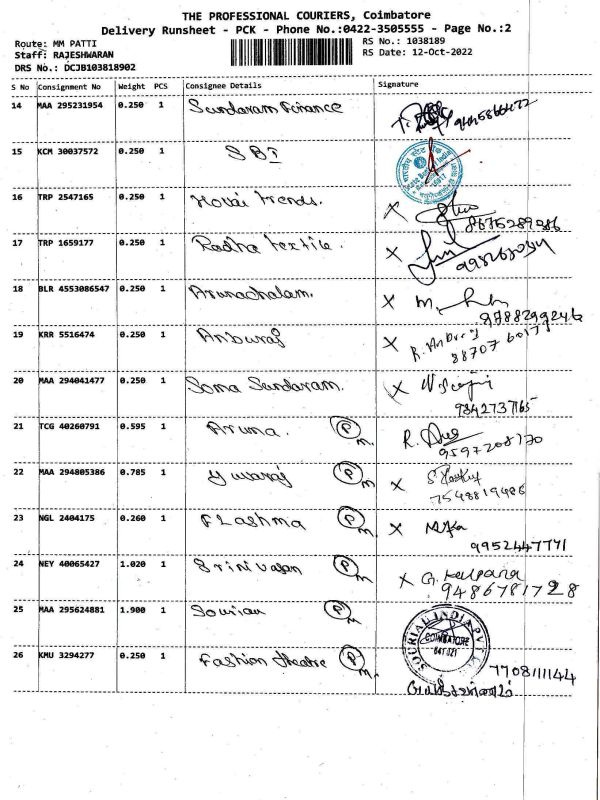 THE PROFESSIONAL COURIERS, Coimbatore
Delivery Runsheet - PCK - Phone No.:0422-3505555 - Page No.:2
Route: MM PATTI RS No.: 1038189
Staff: RAJESHWARAN RS Date: 12-Oct-2022
DRS No.: DCJB103818902
S No Consignment No Weight PCS Consignee Details Signature
14 MAA 295231954 0.250 1 Sundaram Finance
15 KCM 30037572 0.250 1 SBI
16 TRP 2547165 0.250 1 Trends. X
8675289086
17 TRP 1659177 0.250 1 Radha textile. X
18 BLR 4553086547 0.250 1 Arunachalam. X
9788299246
19 KRR 5516474 0.250 1 Anburaj X R. Anburaj
88707 60177
20 MAA 294041477 0.250 1 Soma Sundaram. X
9842737165
21 TCG 40260791 0.595 1 Aruna. P M.
9597208170
22 MAA 294805386 0.785 1 Yuvaraj P M X
7548819486
23 NGL 2404175 0.260 1 FLashma P M. X
9952447771
24 NEY 40065427 1.020 1 Srinivasan P M. X G. Kalpana
9486781728
25 MAA 295624881 1.900 1 Sourian P M.
SOURIAL INDIA PVT
COIMBATORE
641 021
26 KMU 3294277 0.250 1 Fashion theatre P M. 7708111144